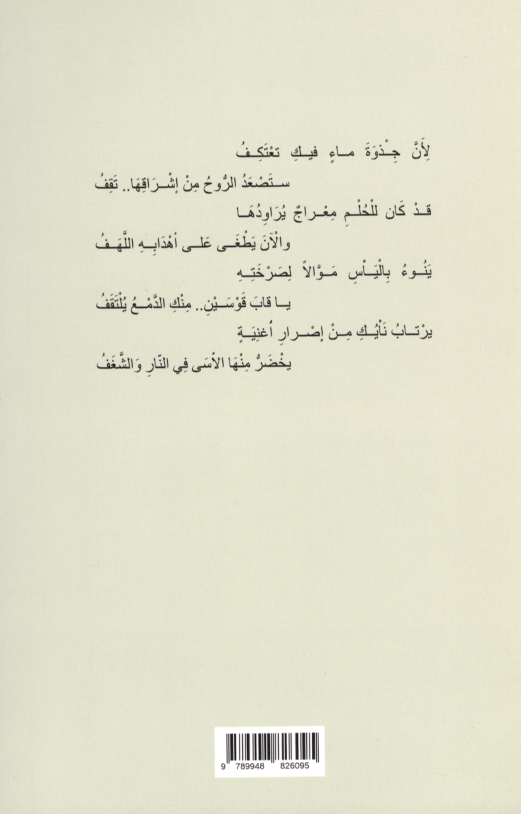 لِأَنَّ جِـذْوَةَ مـاءٍ فيـكِ تعْتَكِـفُ
ستَصْعَدُ الرُّوحُ مِنْ إشْـرَاقِهَا.. تَقِفُ
قـدْ كَان للْحُلْـمِ مِعْـراجٌ يُرَاوِدُهـَا
والْآنَ يَطْغَـى عَلـى أهْدَابِـهِ اللَّهَـفُ
يَنُـوءُ بِالْيَـأْسِ مَـوَّالاً لِصَرْخَتِـهِ
يـا قابَ قَوْسَيْنِ.. مِنْكِ الدَّمْـعُ يُلْتَقَفُ
يرْتـابُ نَأْيُـكِ مِـنْ إصْـرارِ أُغنِيَـةٍ
يخْضَرُّ مِنْهَا الأسَى فِي النّارِ وَالشَّغَفُ
9 789948 826095